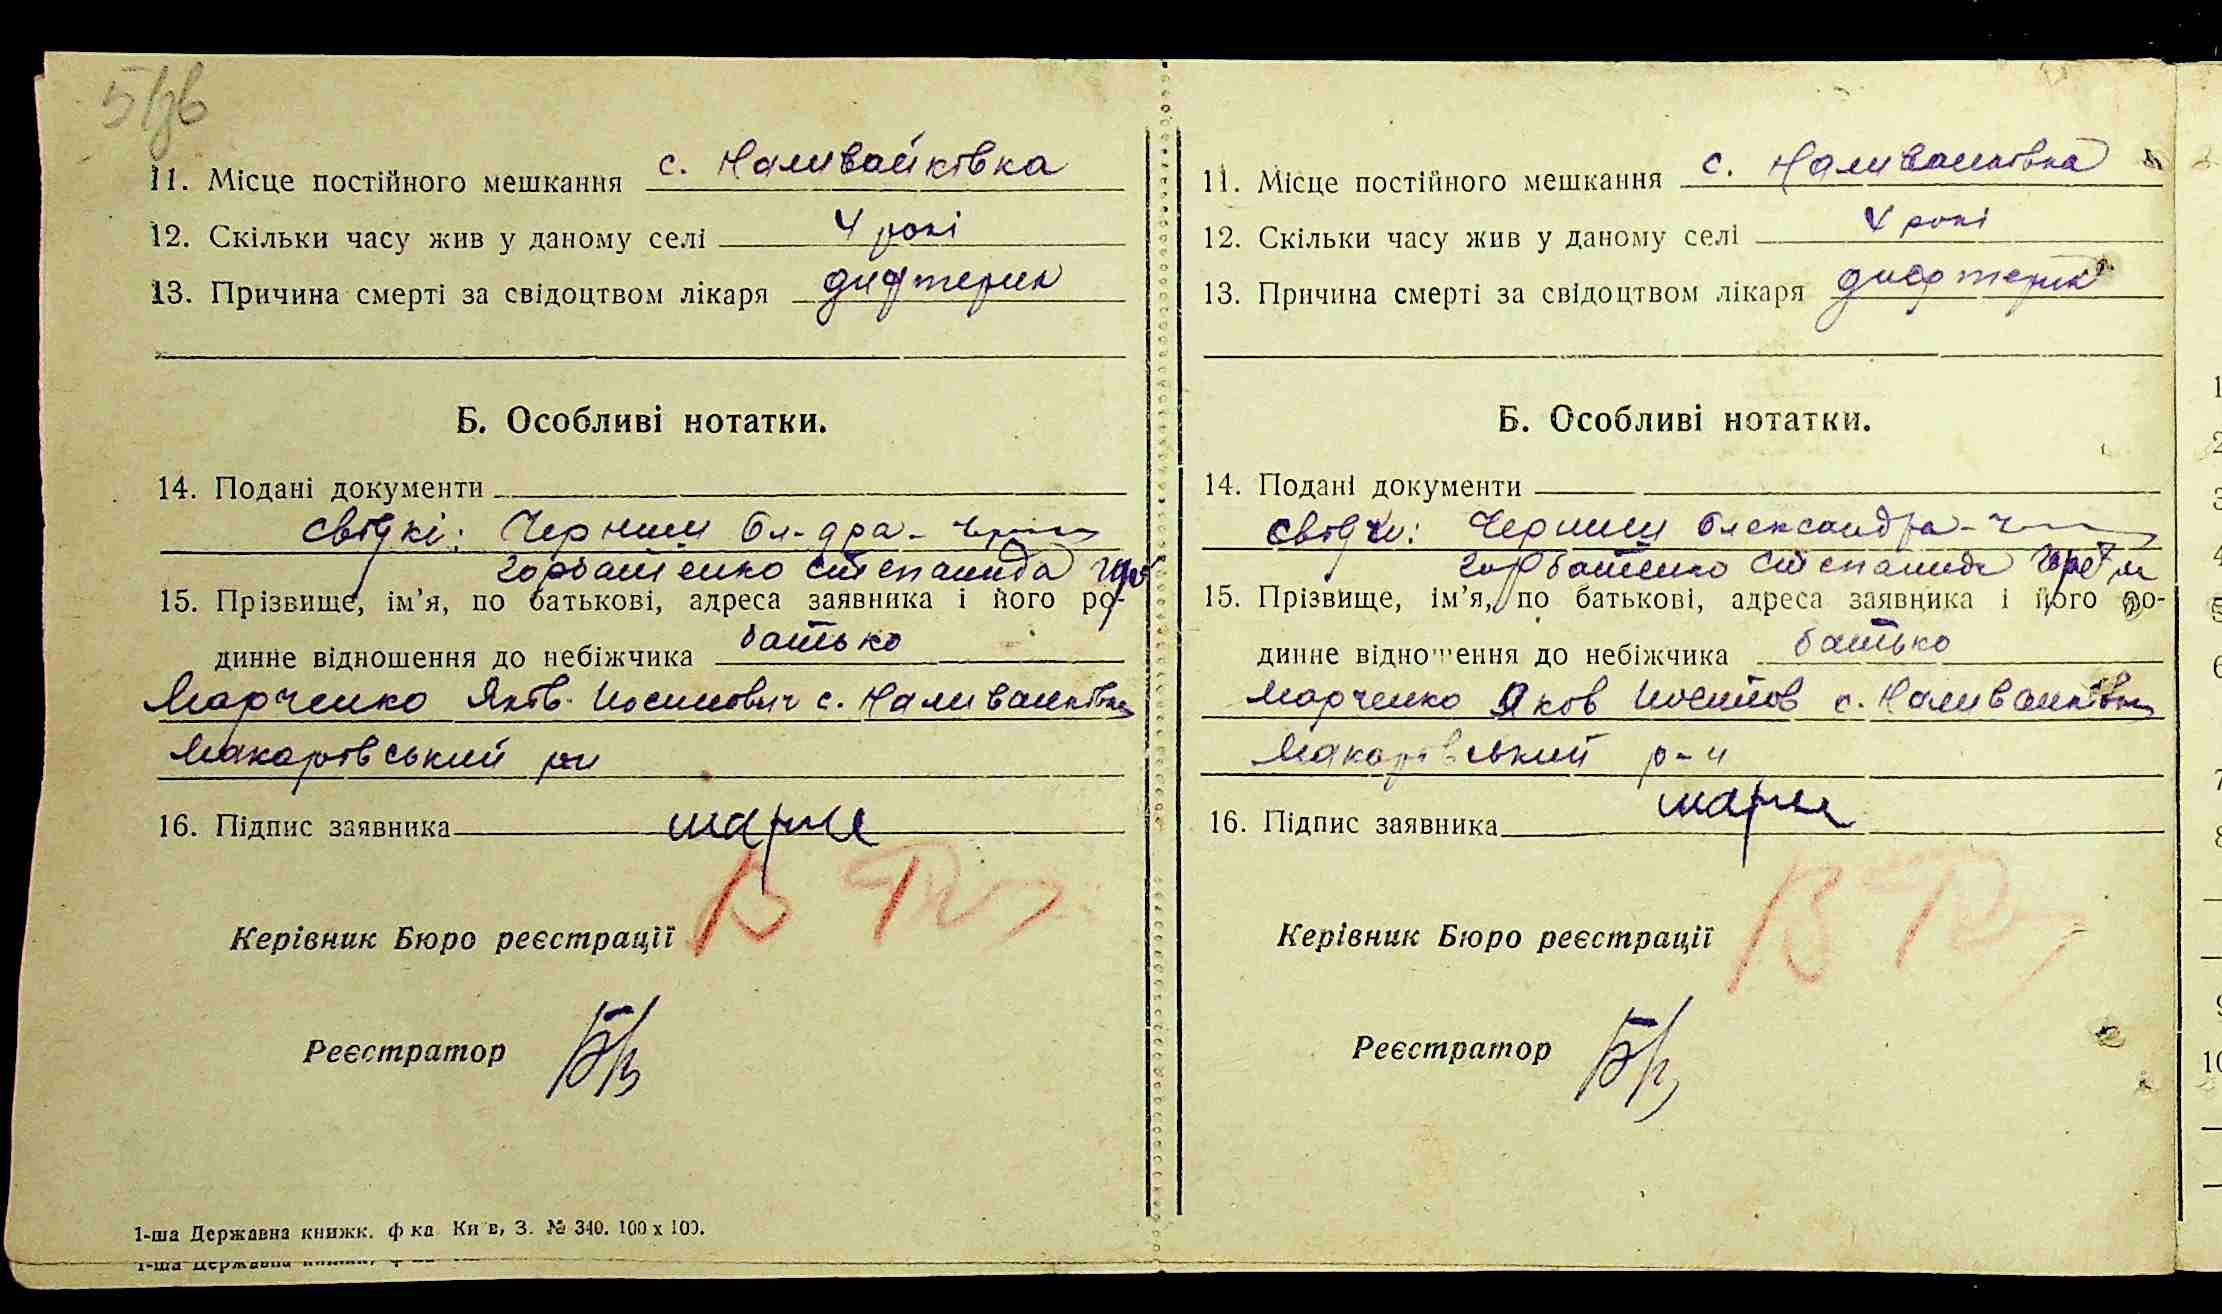 11. Місце постійного мешкання с. Наливайківка
12. Скільки часу жив у даному селі 4 рокі
13. Причина смерті за свідоцтвом лікаря дифтерия
Б. Особливі нотатки.
14. Подані документи
свідкі: Черниш Ол-дра-
Горбатенко Степанида
15. Прізвище, ім'я, по батькові, адреса заявника і його ро-
динне відношення до небіжчика батько
Марченко Яків Йосипович с. Наливайківка
Макарівський р-н
16. Підпис заявника
Керівник Бюро реєстрації
Реєстратор
1-ша Державна книжк. ф ка Ки в, З. № 340. 100 x 100.
11. Місце постійного мешкання с. Наливайківка
12. Скільки часу жив у даному селі 4 рокі
13. Причина смерті за свідоцтвом лікаря дифтерия
Б. Особливі нотатки.
14. Подані документи
свідки: Черниш Олександра-
Горбатенко Степанида
15. Прізвище, ім'я, по батькові, адреса заявника і його ро-
динне відношення до небіжчика батько
Марченко Яков Йосипов с. Наливайківка
Макарівський р-н
16. Підпис заявника
Керівник Бюро реєстрації
Реєстратор